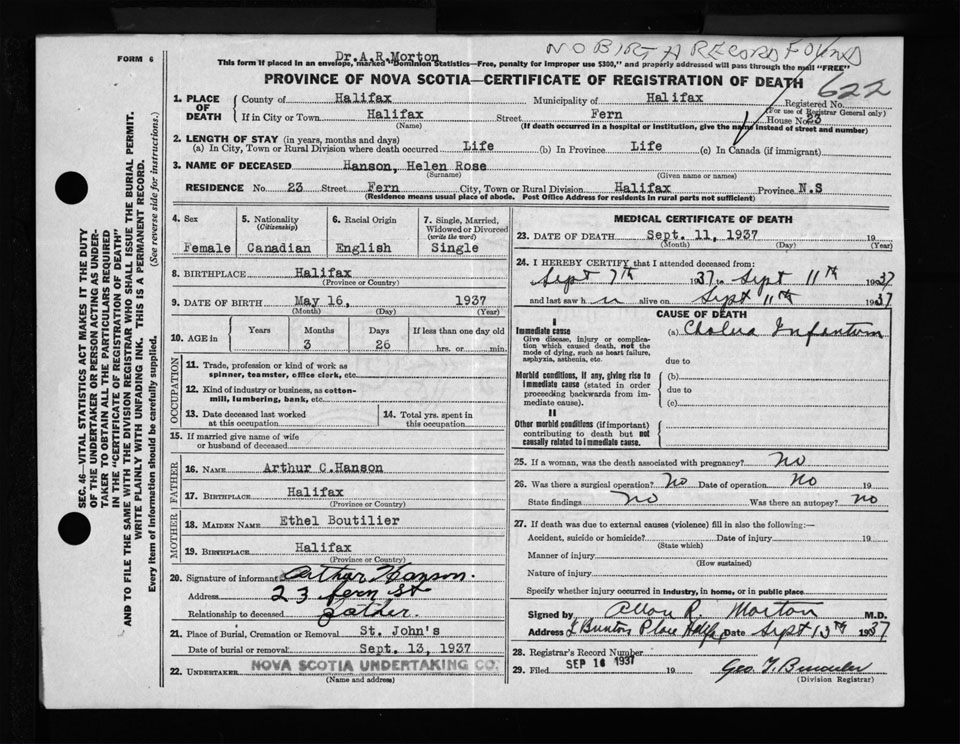 NO BIRTH RECORD FOUND
Dr.A.R.Morton
FORM 6
This form if placed in an envelope, marked "Dominion Statistics—Free, penalty for improper use $300," and properly addressed will pass through the mail "FREE"
PROVINCE OF NOVA SCOTIA—CERTIFICATE OF REGISTRATION OF DEATH
622
1. PLACE OF DEATH County of Halifax Municipality of Halifax Registered No.
(For use of Registrar General only)
If in City or Town Halifax Street Fern House No. 23
(Name) (If death occurred in a hospital or institution, give the name instead of street and number)
2. LENGTH OF STAY (in years, months and days)
(a) In City, Town or Rural Division where death occurred Life (b) In Province Life (c) In Canada (if immigrant)
3. NAME OF DECEASED Hanson, Helen Rose
(Surname) (Given name or names)
RESIDENCE No. 23 Street Fern City, Town or Rural Division Halifax Province N.S
(Residence means usual place of abode. Post Office Address for residents in rural parts not sufficient)
4. Sex Female
5. Nationality (Citizenship) Canadian
6. Racial Origin English
7. Single, Married, Widowed or Divorced (write the word) Single
8. BIRTHPLACE Halifax
(Province or Country)
9. DATE OF BIRTH May 16, 1937
(Month) (Day) (Year)
10. AGE in Years Months 3 Days 26 If less than one day old hrs. or min.
OCCUPATION
11. Trade, profession or kind of work as spinner, teamster, office clerk, etc.
12. Kind of industry or business, as cotton-mill, lumbering, bank, etc.
13. Date deceased last worked at this occupation
14. Total yrs. spent in this occupation
15. If married give name of wife or husband of deceased
FATHER
16. NAME Arthur C.Hanson
17. BIRTHPLACE Halifax
(Province or Country)
MOTHER
18. MAIDEN NAME Ethel Boutilier
19. BIRTHPLACE Halifax
(Province or Country)
20. Signature of informant Arthur Hanson.
Address 23 Fern St
Relationship to deceased Father.
21. Place of Burial, Cremation or Removal St. John's
Date of burial or removal Sept. 13, 1937
22. UNDERTAKER NOVA SCOTIA UNDERTAKING CO.
(Name and address)
MEDICAL CERTIFICATE OF DEATH
23. DATE OF DEATH Sept. 11, 1937 19
(Month) (Day) (Year)
24. I HEREBY CERTIFY that I attended deceased from:
Sept 7th 1937 to Sept 11th 1937
and last saw her alive on Sept 11th 1937
CAUSE OF DEATH
I
Immediate cause
Give disease, injury or complication which caused death, not the mode of dying, such as heart failure, asphyxia, asthenia, etc.
(a) Cholera Infantum
due to
Morbid conditions, if any, giving rise to immediate cause (stated in order proceeding backwards from immediate cause).
(b)
due to
(c)
II
Other morbid conditions (if important) contributing to death but not causally related to immediate cause.
25. If a woman, was the death associated with pregnancy? No
26. Was there a surgical operation? No Date of operation No 19
State findings No Was there an autopsy? No
27. If death was due to external causes (violence) fill in also the following:—
Accident, suicide or homicide? Date of injury 19
(State which)
Manner of injury
(How sustained)
Nature of injury
Specify whether injury occurred in industry, in home, or in public place
Signed by Allan R. Morton M.D.
Address Place Halifax Date Sept 13th 1937
28. Registrar's Record Number
29. Filed SEP 16 1937 19 Geo.
(Division Registrar)
SEC. 46—VITAL STATISTICS ACT MAKES IT THE DUTY
OF THE UNDERTAKER OR PERSON ACTING AS UNDER-
TAKER TO OBTAIN ALL THE PARTICULARS REQUIRED
IN THE "CERTIFICATE OF REGISTRATION OF DEATH"
AND TO FILE THE SAME WITH THE DIVISION REGISTRAR WHO SHALL ISSUE THE BURIAL PERMIT.
WRITE PLAINLY WITH UNFADING INK. THIS IS A PERMANENT RECORD.
Every item of information should be carefully supplied. (See reverse side for instructions.)